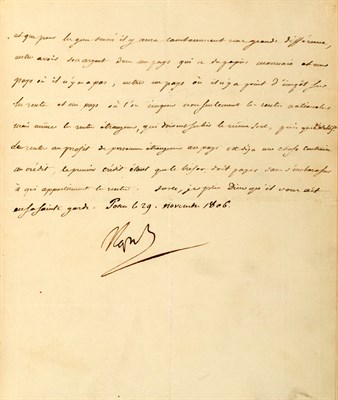 et que pour le quasi il y aura constamment une grande différence,
entre avoir son argent dans un pays qui a du papier monnaie et un
pays où il n'y en a pas, entre un pays où il n'y a point d'impôt sur
la rente et un pays où l'on impose non seulement les rentes nationales
mais même les rentes étrangères, qui doivent subir le même sort, puis que
la rente au profit de personnes étrangères au pays est déjà une chose contraire
au crédit, le premier crédit étant que le trésor doit payer sans s'embarrasser
à qui appartiennent les rentes. Sur ce, je prie Dieu qu'il vous ait
en sa sainte garde. Posen le 29. novembre 1806
Nap